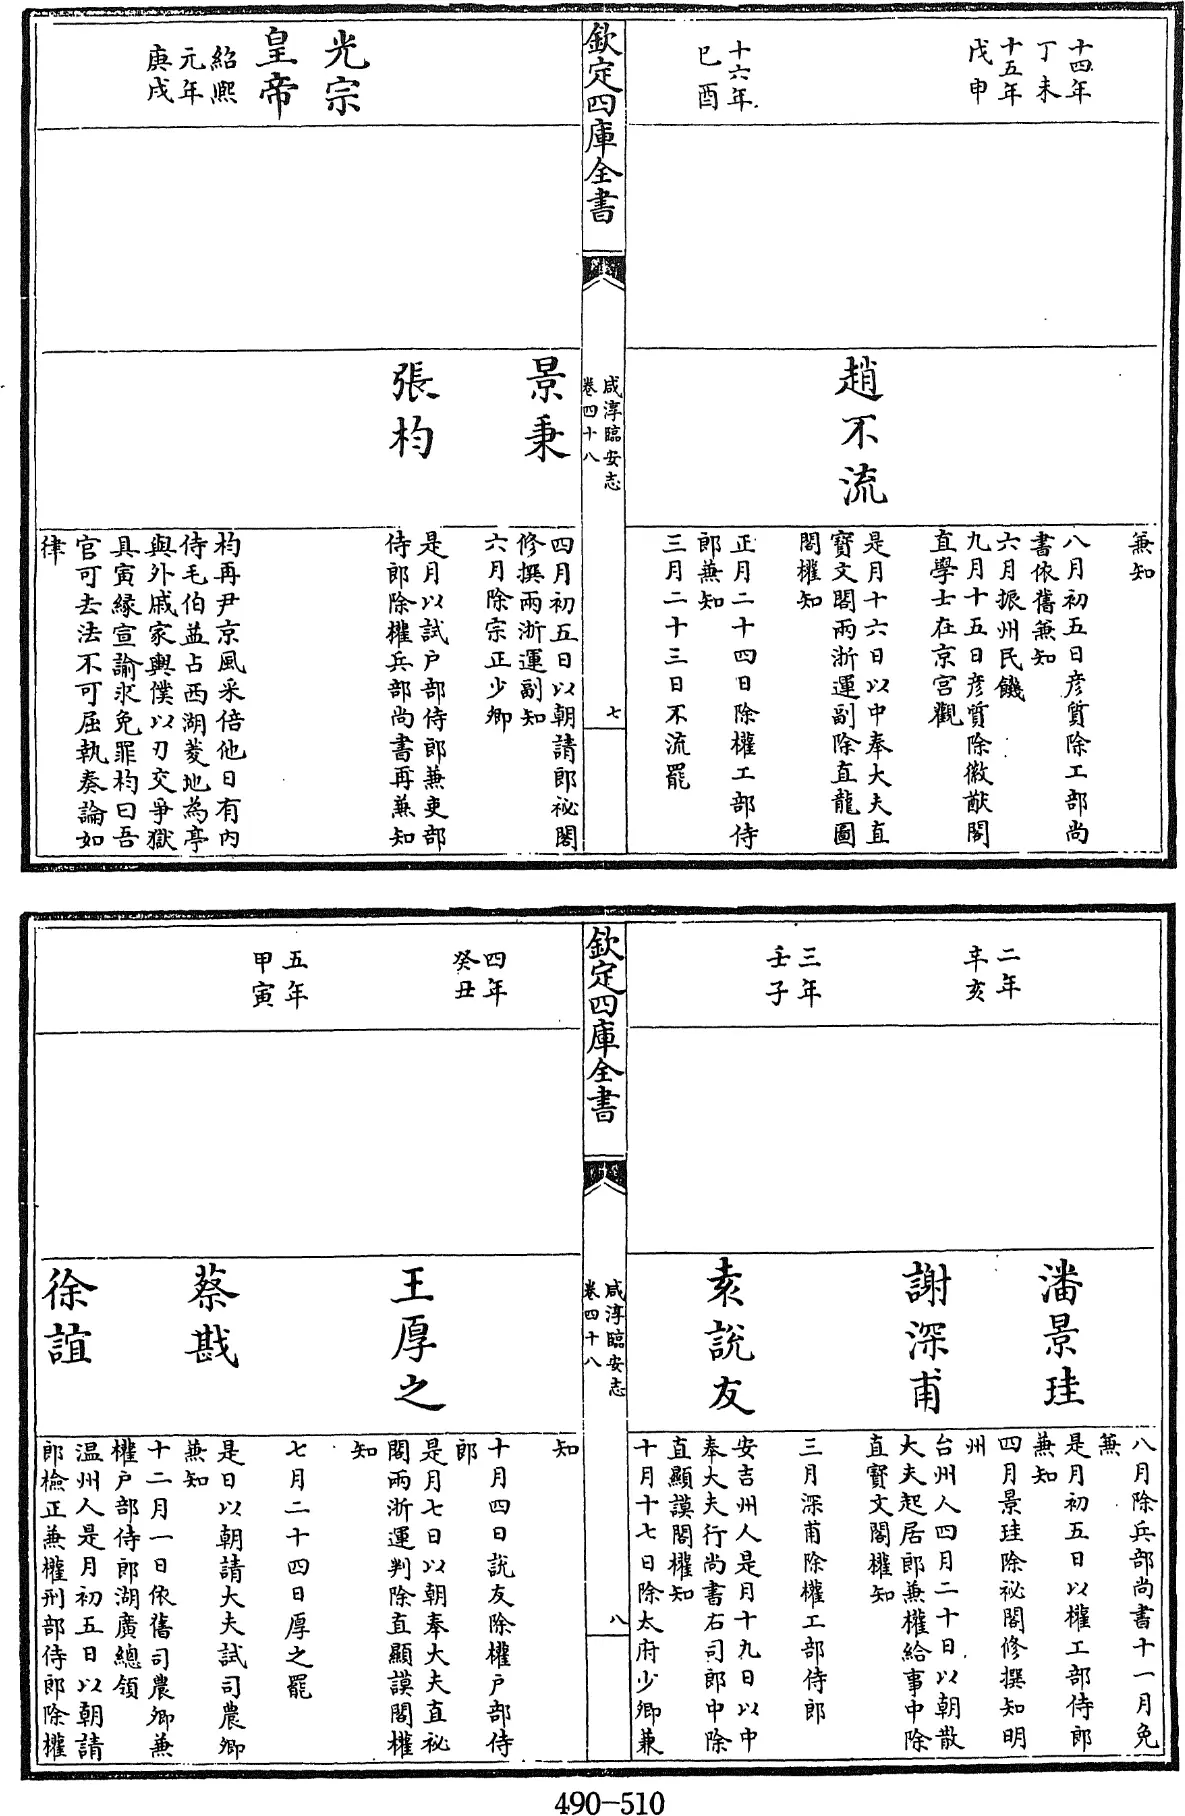 十四年
丁未
十五年
戊申
十六年
已酉
趙不流
兼知
八月初五日彦質除工部尚
書依舊兼知
六月振州民饑
九月十五日彦質除徽猷閣
直學士在京宮觀
是月十六日以中奉大夫直
寳文閣兩浙運副除直龍圖
閣權知
正月二十四日除權工部侍
郎兼知
三月二十三日不流罷
欽定四庫全書
咸淳臨安志
卷四十八
七
光宗
皇帝
紹熙
元年
庚戌
景秉
張枃
四月初五日以朝請郎祕閣
修撰兩浙運副知
六月除宗正少卿
是月以試户部侍郎兼吏部
侍郎除權兵部尚書再兼知
枃再尹京風采倍他日有内
侍毛伯益占西湖菱地為亭
與外戚家輿僕以刃交爭獄
具寅緣宣諭求免罪枃曰吾
官可去法不可屈執奏論如
律
二年
辛亥
三年
壬子
潘景珪
謝深甫
袁說友
八月除兵部尚書十一月免
兼
是月初五日以權工部侍郎
兼知
四月景珪除祕閣修撰知明
州
台州人四月二十日以朝散
大夫起居郎兼權給事中除
直寳文閣權知
三月深甫除權工部侍郎
安吉州人是月十九日以中
奉大夫行尚書右司郎中除
直顯謨閣權知
十月十七日除太府少卿兼
欽定四庫全書
咸淳臨安志
卷四十八
八
四年
癸丑
五年
甲寅
王厚之
蔡戡
徐誼
知
十月四日說友除權户部侍
郎
是月七日以朝奉大夫直祕
閣兩浙運判除直顯謨閣權
知
七月二十四日厚之罷
是日以朝請大夫試司農卿
兼知
十二月一日依舊司農卿兼
權户部侍郎湖廣總領
温州人是月初五日以朝請
郎檢正兼權刑部侍郎除權
490-510